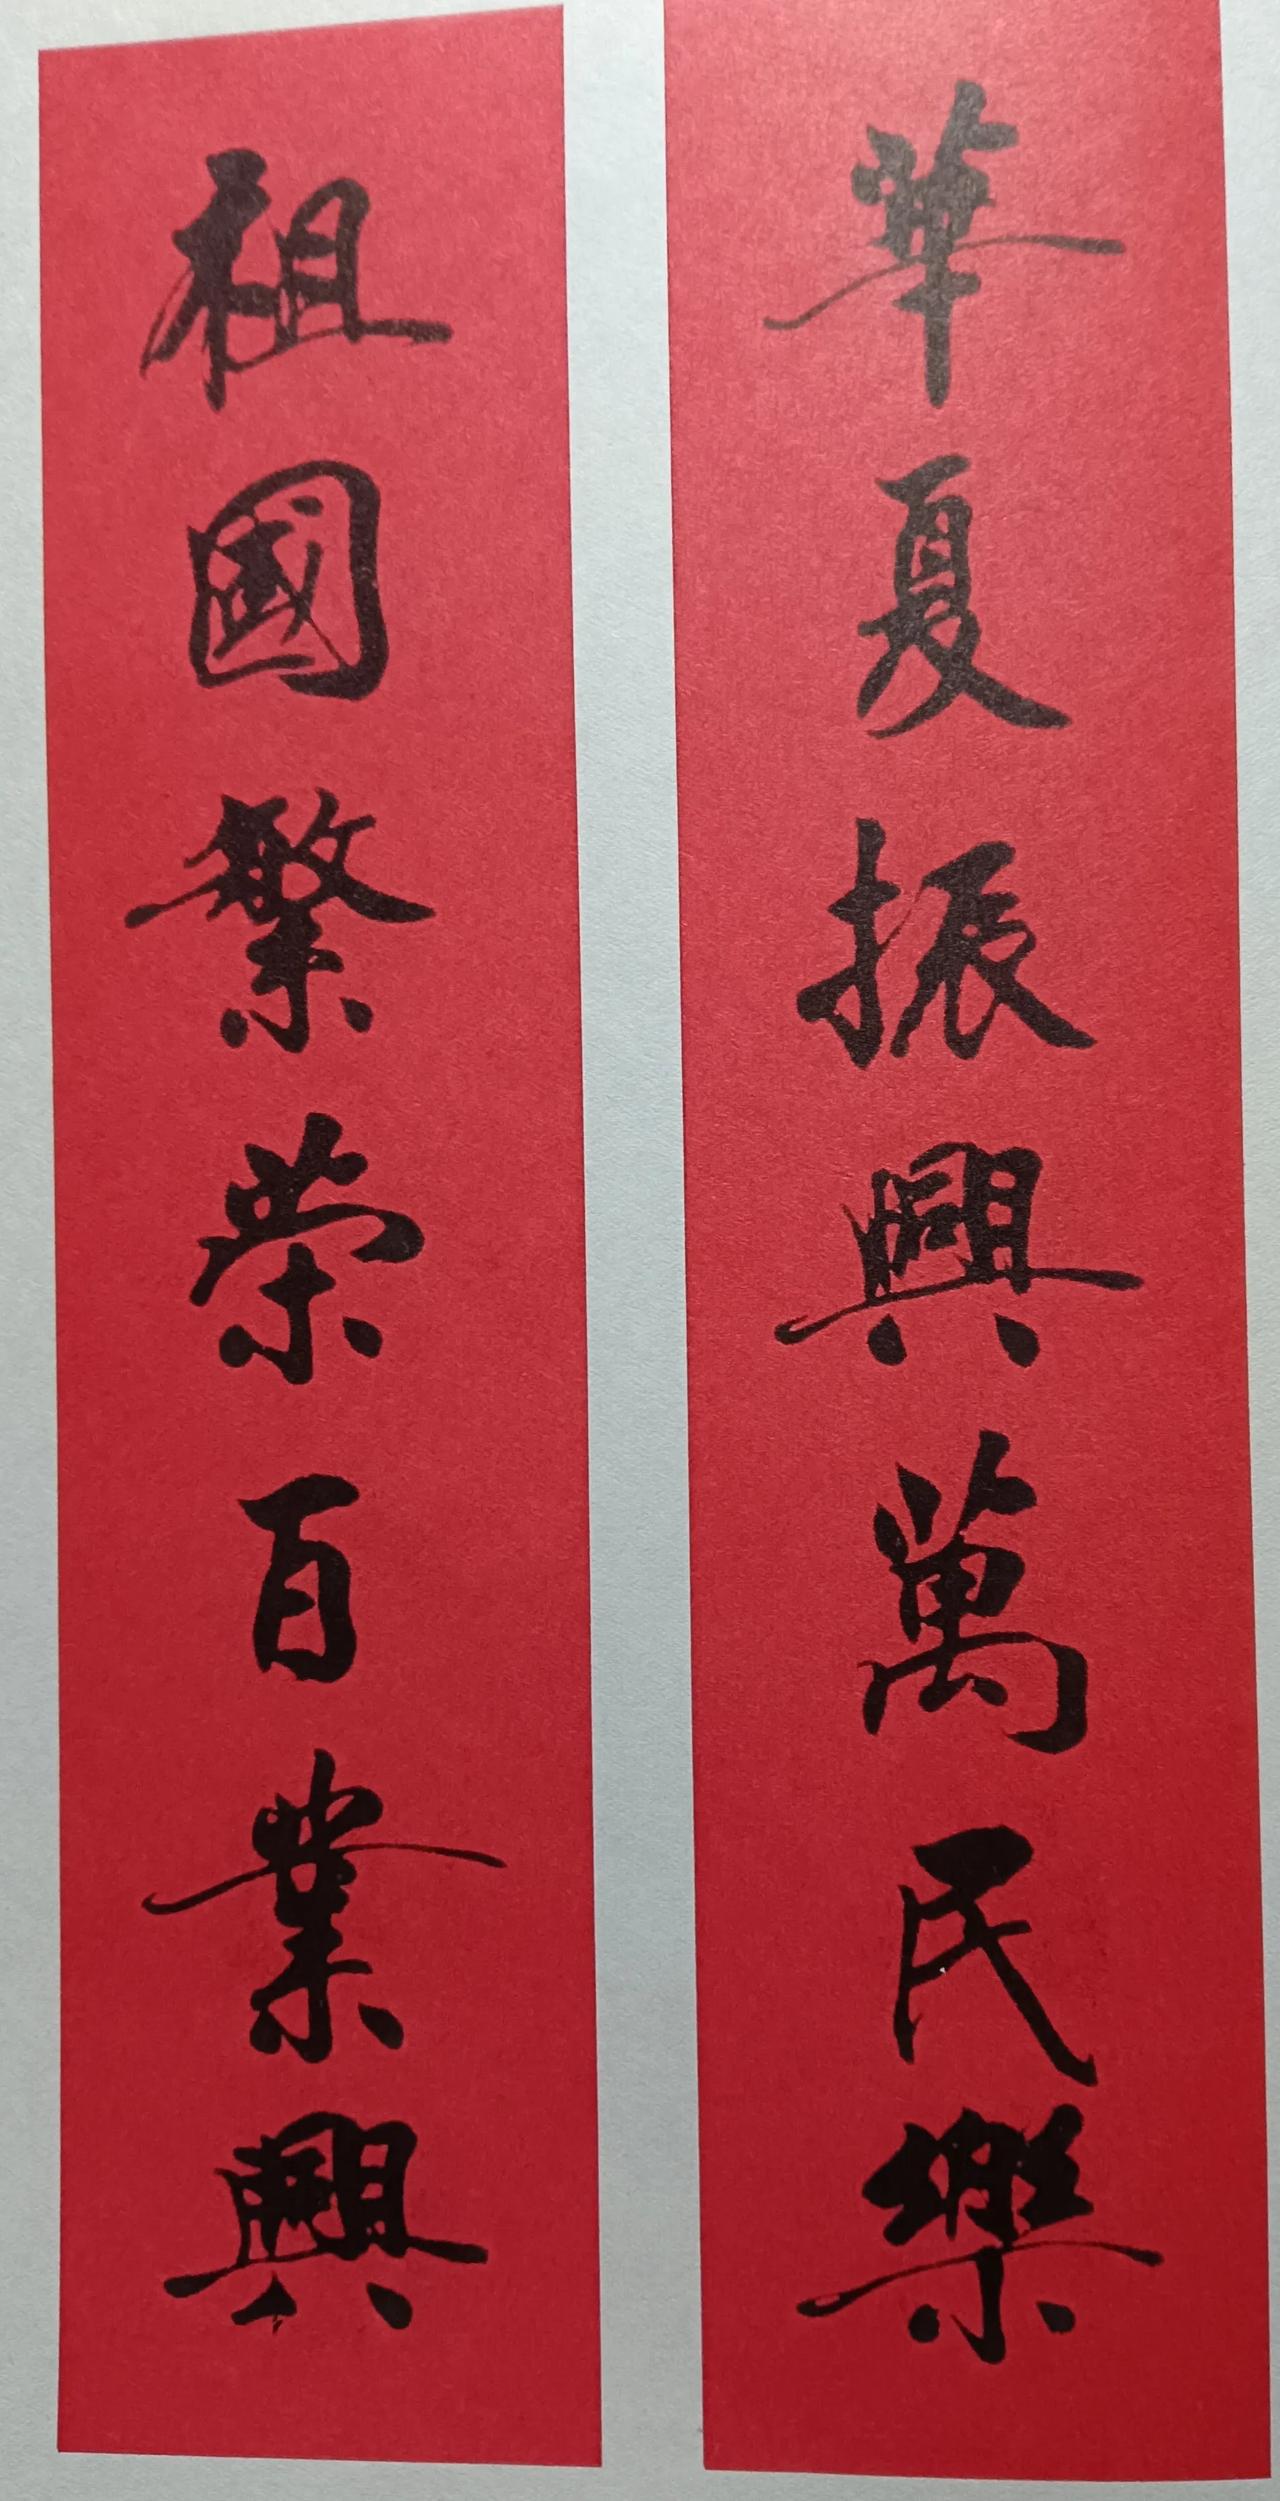 華夏振興萬民樂
祖國繁荣百業興